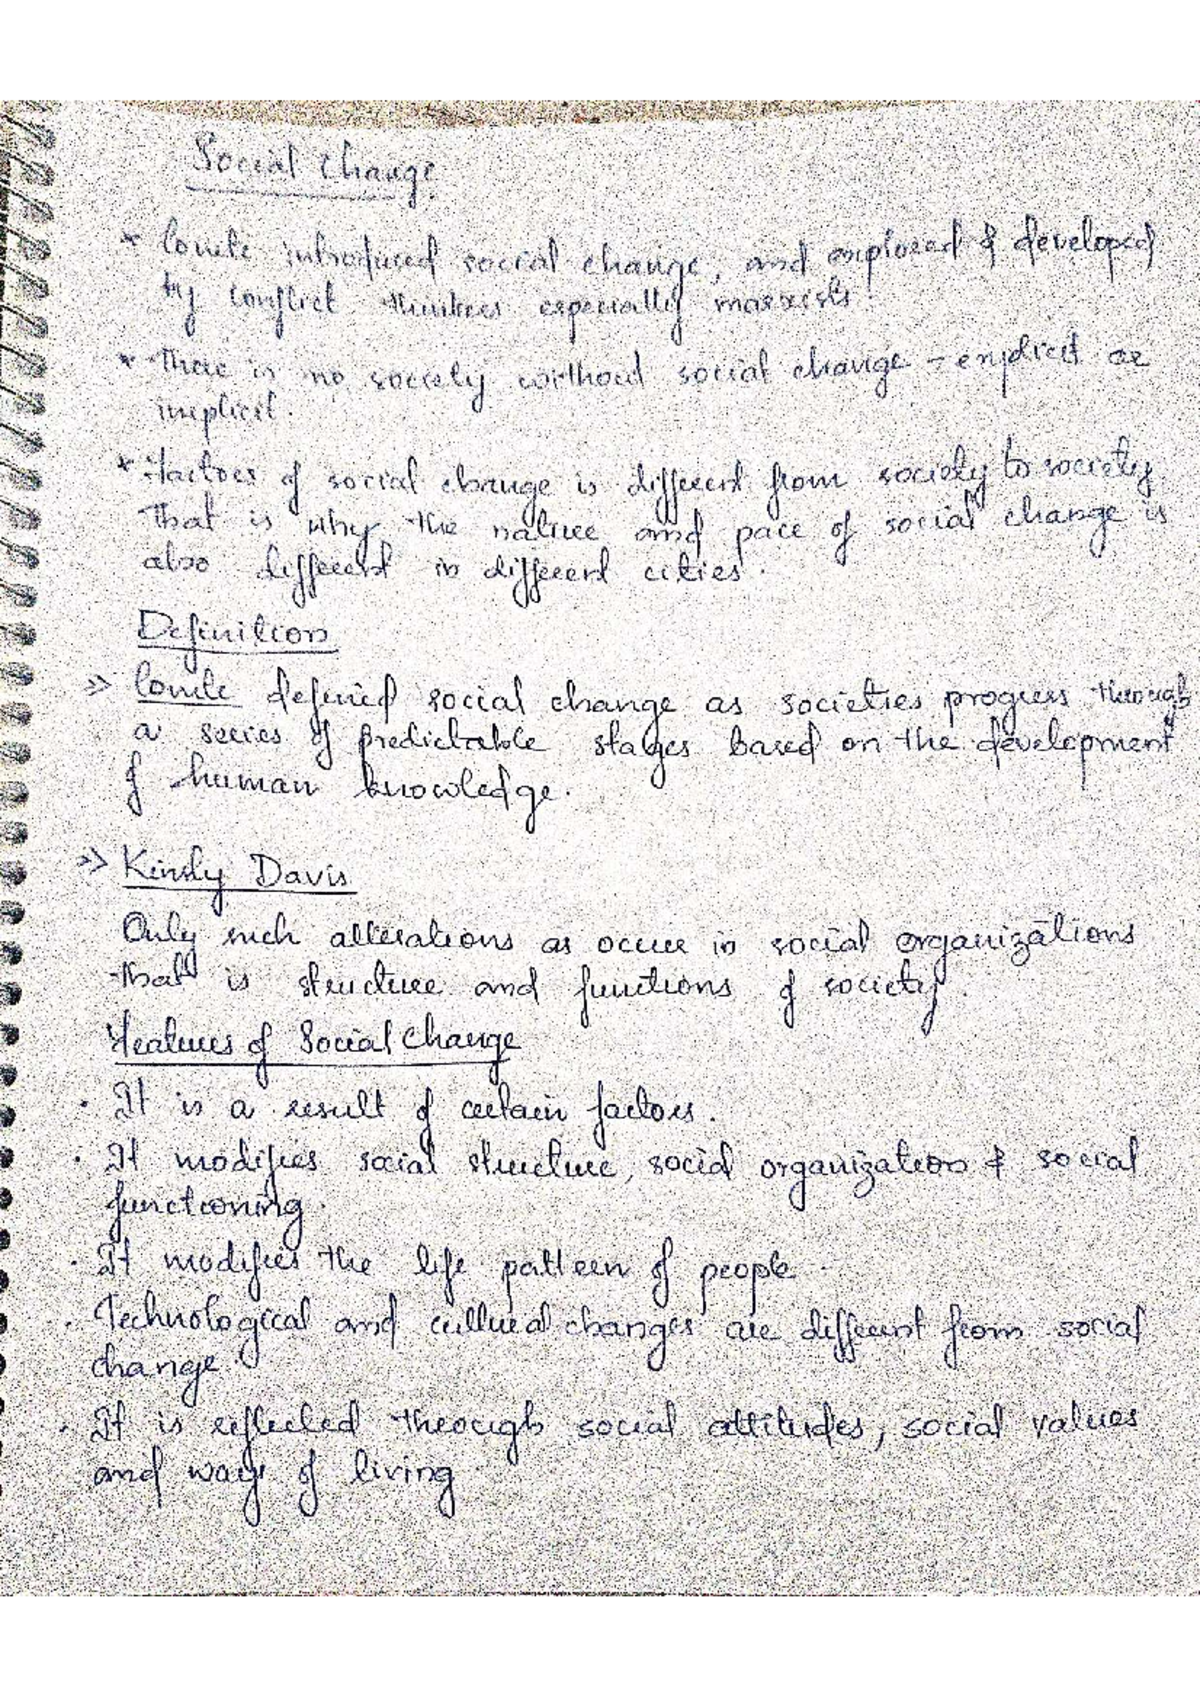 Social Change
* Comte introduced social change, and employed & developed
by conflict thinkers especially marxists.
* There is no society without social change - explicit or
implicit.
* Factors of social change is different from society to society
That is why the nature and pace of social change is
also different in different cities.
Definition
>> Comte defined social change as societies progress through
a series of predictable stages based on the development
of human knowledge.
>> Kinsly Davis
Only such alterations as occur in social organizations
that is structure and functions of society.
Features of Social Change
· It is a result of certain factors.
· It modifies social structure, social organization & social
functioning.
· It modifies the life pattern of people.
· Technological and cultural changes are different from social
change.
· It is reflected through social attitudes, social values
and ways of living